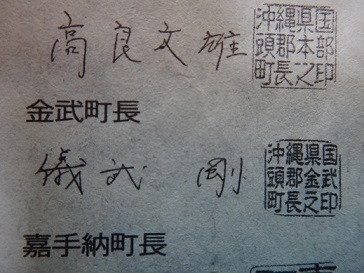 高良文雄
沖縄県国
頭郡本部
町長之印
金武町長
儀武 剛
沖縄県国
頭郡金武
町長之印
嘉手納町長